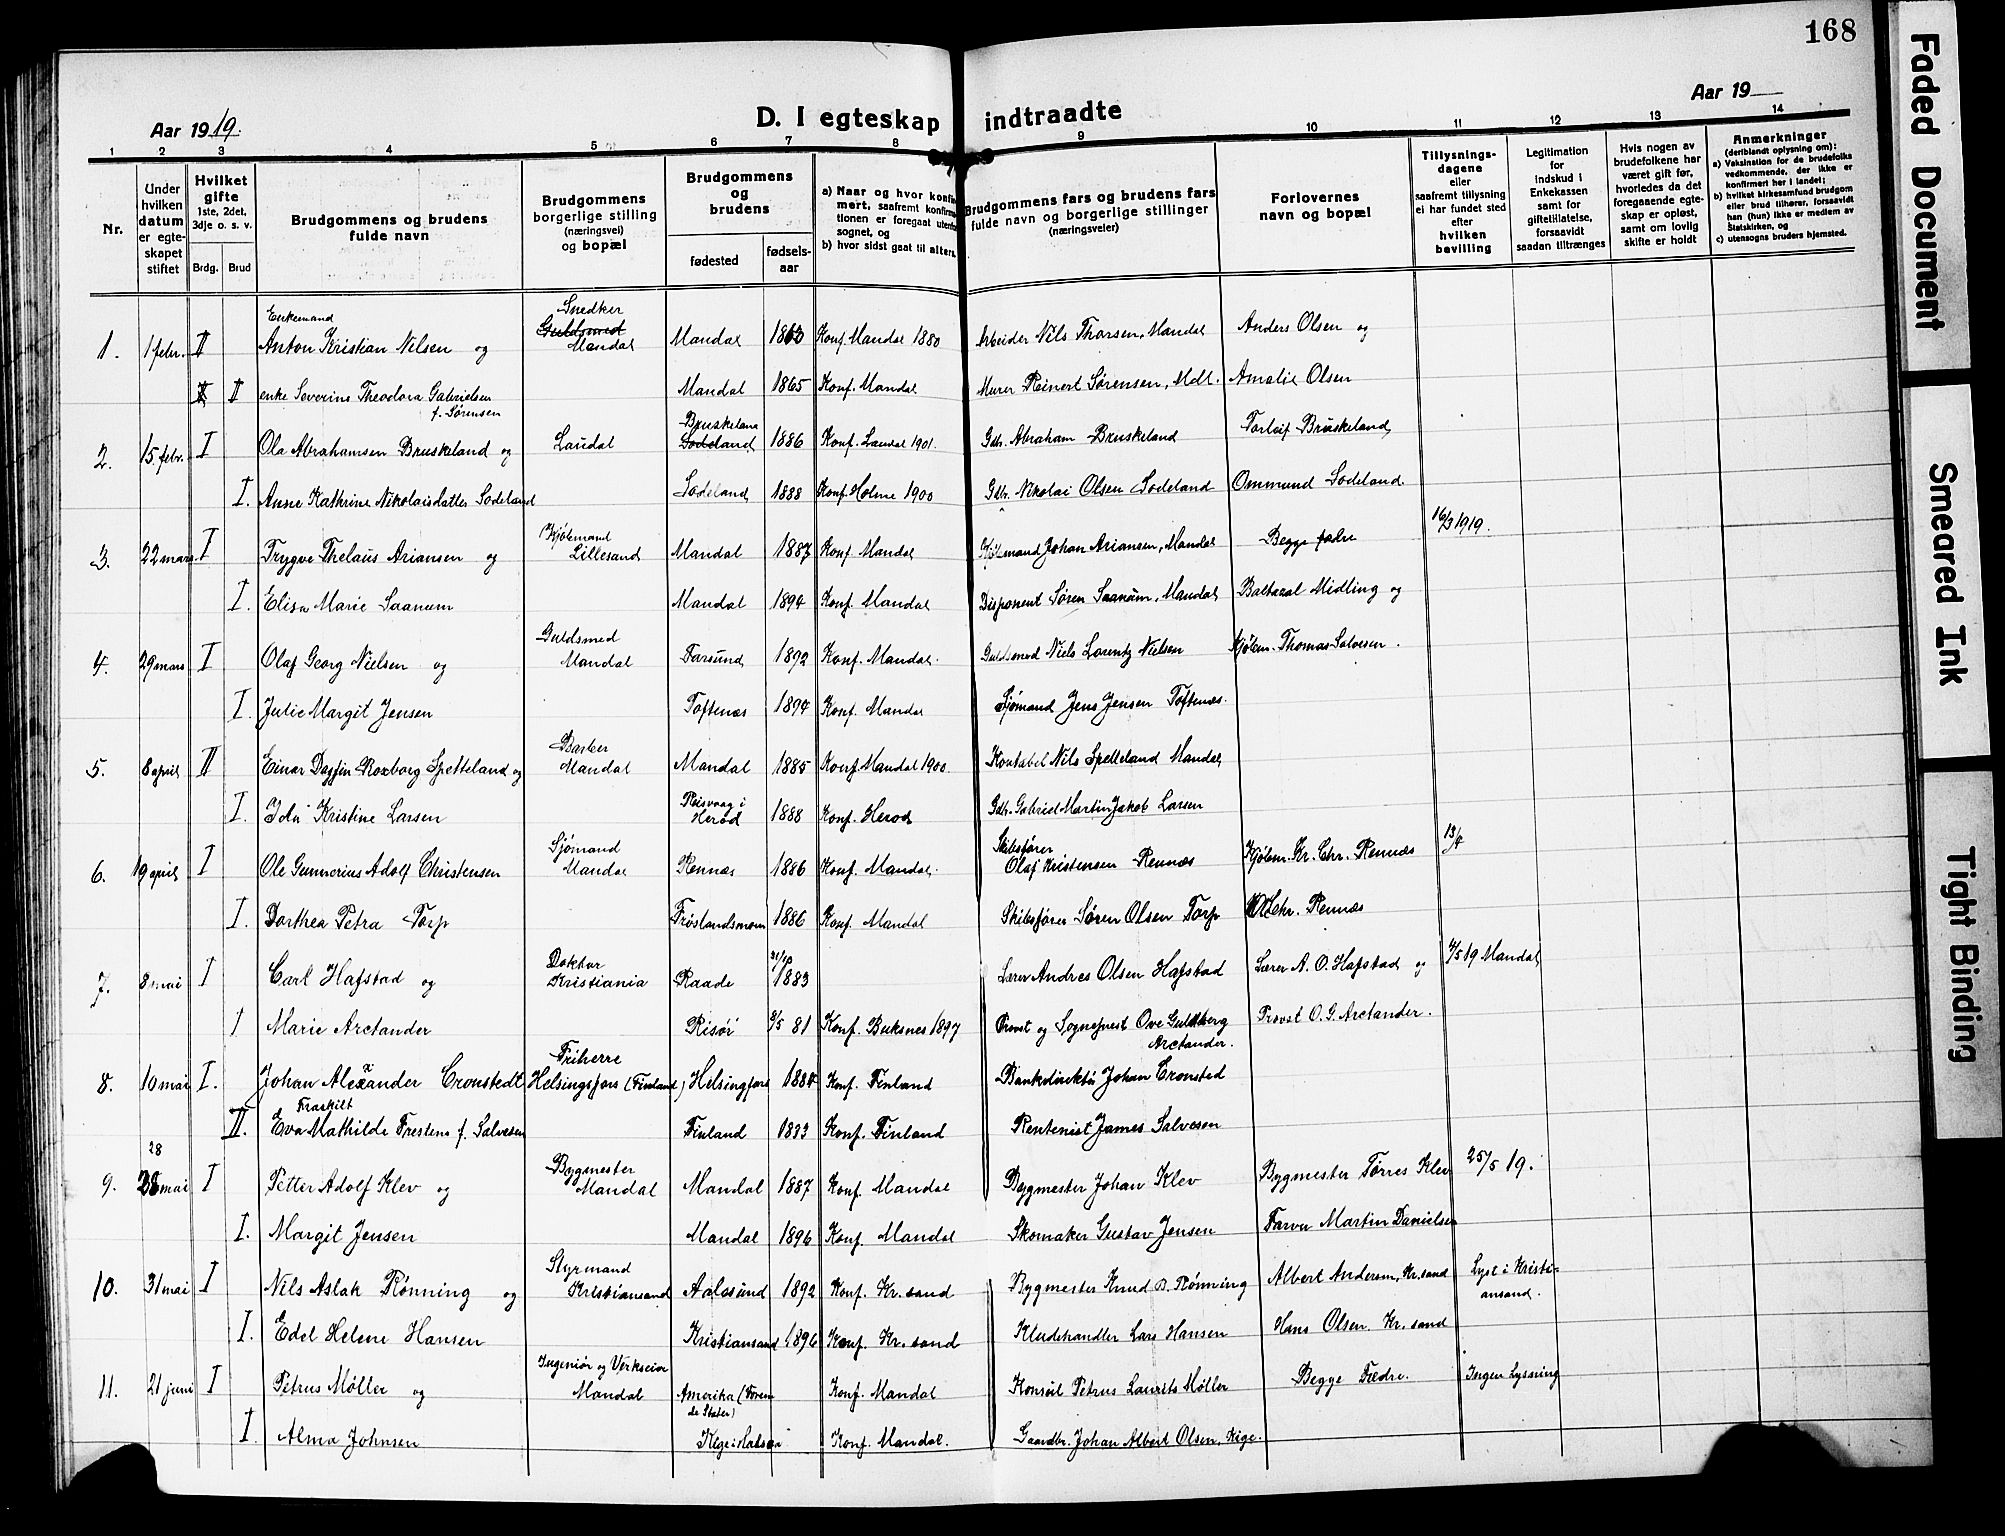 168
Aar 1919.
D. I egteskap indtraadte
Aar 19
1 2 3 4 5 6 7 8 9 10 11 12 13 14
Nr.
Under hvilken datum er egteskapet stiftet
Hvilket gifte 1ste, 2det, 3dje o. s. v.
Brdg. Brud
Brudgommens og brudens fulde navn
Brudgommens borgerlige stilling (næringsvei) og bopæl
Brudgommens og brudens
fødested
fødsels-aar
a) Naar og hvor konfirmert, saafremt konfirmationen er foregaat utenfor sognet, og
b) hvor sidst gaat til alters.
Brudgommens fars og brudens fars fulde navn og borgerlige stillinger (næringsveier)
Forlovernes navn og bopæl
Tillysnings-dagene eller saafremt tillysning ei har fundet sted efter hvilken bevilling
Legitimation for indskud i Enkekassen samt for giftetillatelse, forsaavidt saadan tiltrænges
Hvis nogen av brudefolkene har været gift før, hvorledes da det foregaaende egteskap er opløst, samt om lovlig skifte er holdt
Anmerkninger (deriblandt oplysning om):
a) Vaksination for de brudefolks vedkommende, der ikke er konfirmert her i landet;
b) hvilket kirkesamfund brudgom eller brud tilhører, forsaavidt han (hun) ikke er medlem av Statskirken, og
c) utensogns bruders hjemsted.
1. 1 febr. II Enkemand Anton Kristian Nilsen og Snedker Guldsmed Mandal Mandal 1863 Konf. Mandal 1880 Arbeider Nils Thorsen, Mandal Anders Olsen og
II enke Severine Theodora Gabrielsen f. Sørensen Mandal 1865 Konf. Mandal Murer Reinert Sørensen, Mdl. Amalie Olsen
2. 15 febr. I Ola Abrahamsen Bruskeland og Laudal Bruskeland Sodeland 1886 Konf. Laudal 1901. Gbr. Abraham Bruskeland Torleif Bruskeland,
I. Anne Kathrine Nikolaisdatter Sodeland Sodeland 1888 Konf. Holme 1900 Gbr. Nikolai Olsen Sodeland Ommund Sodeland.
3. 22 mars I Trygve Thelaus Ariansen og Kjøbmand Lillesand Mandal 1887 Konf. Mandal Kjøbmand Johan Ariansen, Mandal Begge fædre 16/3 1919.
I. Elisa Marie Saanum Mandal 1894 Konf. Mandal Disponent Søren Saanum, Mandal, Baltazal Midling og
4. 29 mars I Olaf Georg Nielsen og Guldsmed Mandal Farsund 1892 Konf. Mandal. Guldsmed Niels Lorentz Nielsen Kjøbm. Thomas Salvesen.
I. Julie Margit Jensen Toftenæs 1894 Konf. Mandal Sjømand Jens Jensen Toftenæs.
5. 8 april II Einar Dagfin Roxborg Spetteland og Barber Mandal Mandal 1885 Konf. Mandal 1900. Nils Spetteland Mandal
I. Ida Kristine Larsen Reisvaag i Herød 1888 Konf. Herod Gbr. Gabriel Martin Jakob Larsen
6. 19 april I Ole Gunnerius Adolf Christensen Sjømand Mandal Rennæs 1886 Konf. Mandal. Skibsfører Olaf Kristensen Rennæs Kjøbm. Kr. Chr. Rennæs 13/4
I. Dorthea Petra Torp 1886 Konf. Mandal Skibsfører Søren Olsen Torp Chr. Rennæs
7. 8 mai I Carl Hafstad og Doktor Kristiania Raade 1883 Lærer Andres Olsen Hafstad Lærer A. O. Hafstad og 4/5 19 Mandal
I Marie Arctander Risør 81 Konf. Buksnes 1897 Provst og Sogneprest Ove Guldberg Arctander. Provst O. G. Arctander.
8. 10 mai I. Johan Alexander Cronstedt Friherre Helsingsfors (Finland) Helsingfors 1884 Konf. Finland Bankdirektør Johan Cronsted
II. Fraskilt Eva Mathilde Trestens f. Salvesen Finland 1833 Konf. Finland Rentenist James Salveson
9. 28 28 mai I Petter Adolf Klev og Bygmester Mandal Mandal 1887 Konf. Mandal Bygmester Johan Klev Bygmester Tørres Klev 25/5 19.
I. Margit Jensen Mandal 1896 Konf. Mandal Skomaker Gustav Jensen Farver Martin Danielsen
10. 31 mai I Nils Aslak Rønning og Styrmand Kristiansand Aalesund 1892 Konf. Kr.sand Bygmester Knud B. Rønning Albert Andersen, Kr.sand Lyst i Kristiansand.
I. Edel Helene Hansen Kristiansand 1896 Konf. Kr.sand Kludehandler Lars Hansen Hans Olsen. Kr.sand
11. 21 juni I Petrus Møller og Ingeniør og Verkseier Mandal Amerika (Forende Stater) Konf. Mandal Konsul Petrus Laurits Møller Begge Fædre. Ingen Lysning
I. Alma Johnsen Konf. Mandal. Gaardbr. Johan Albert Olsen, Kige.
Faded Document
Smeared Ink
Tight Binding